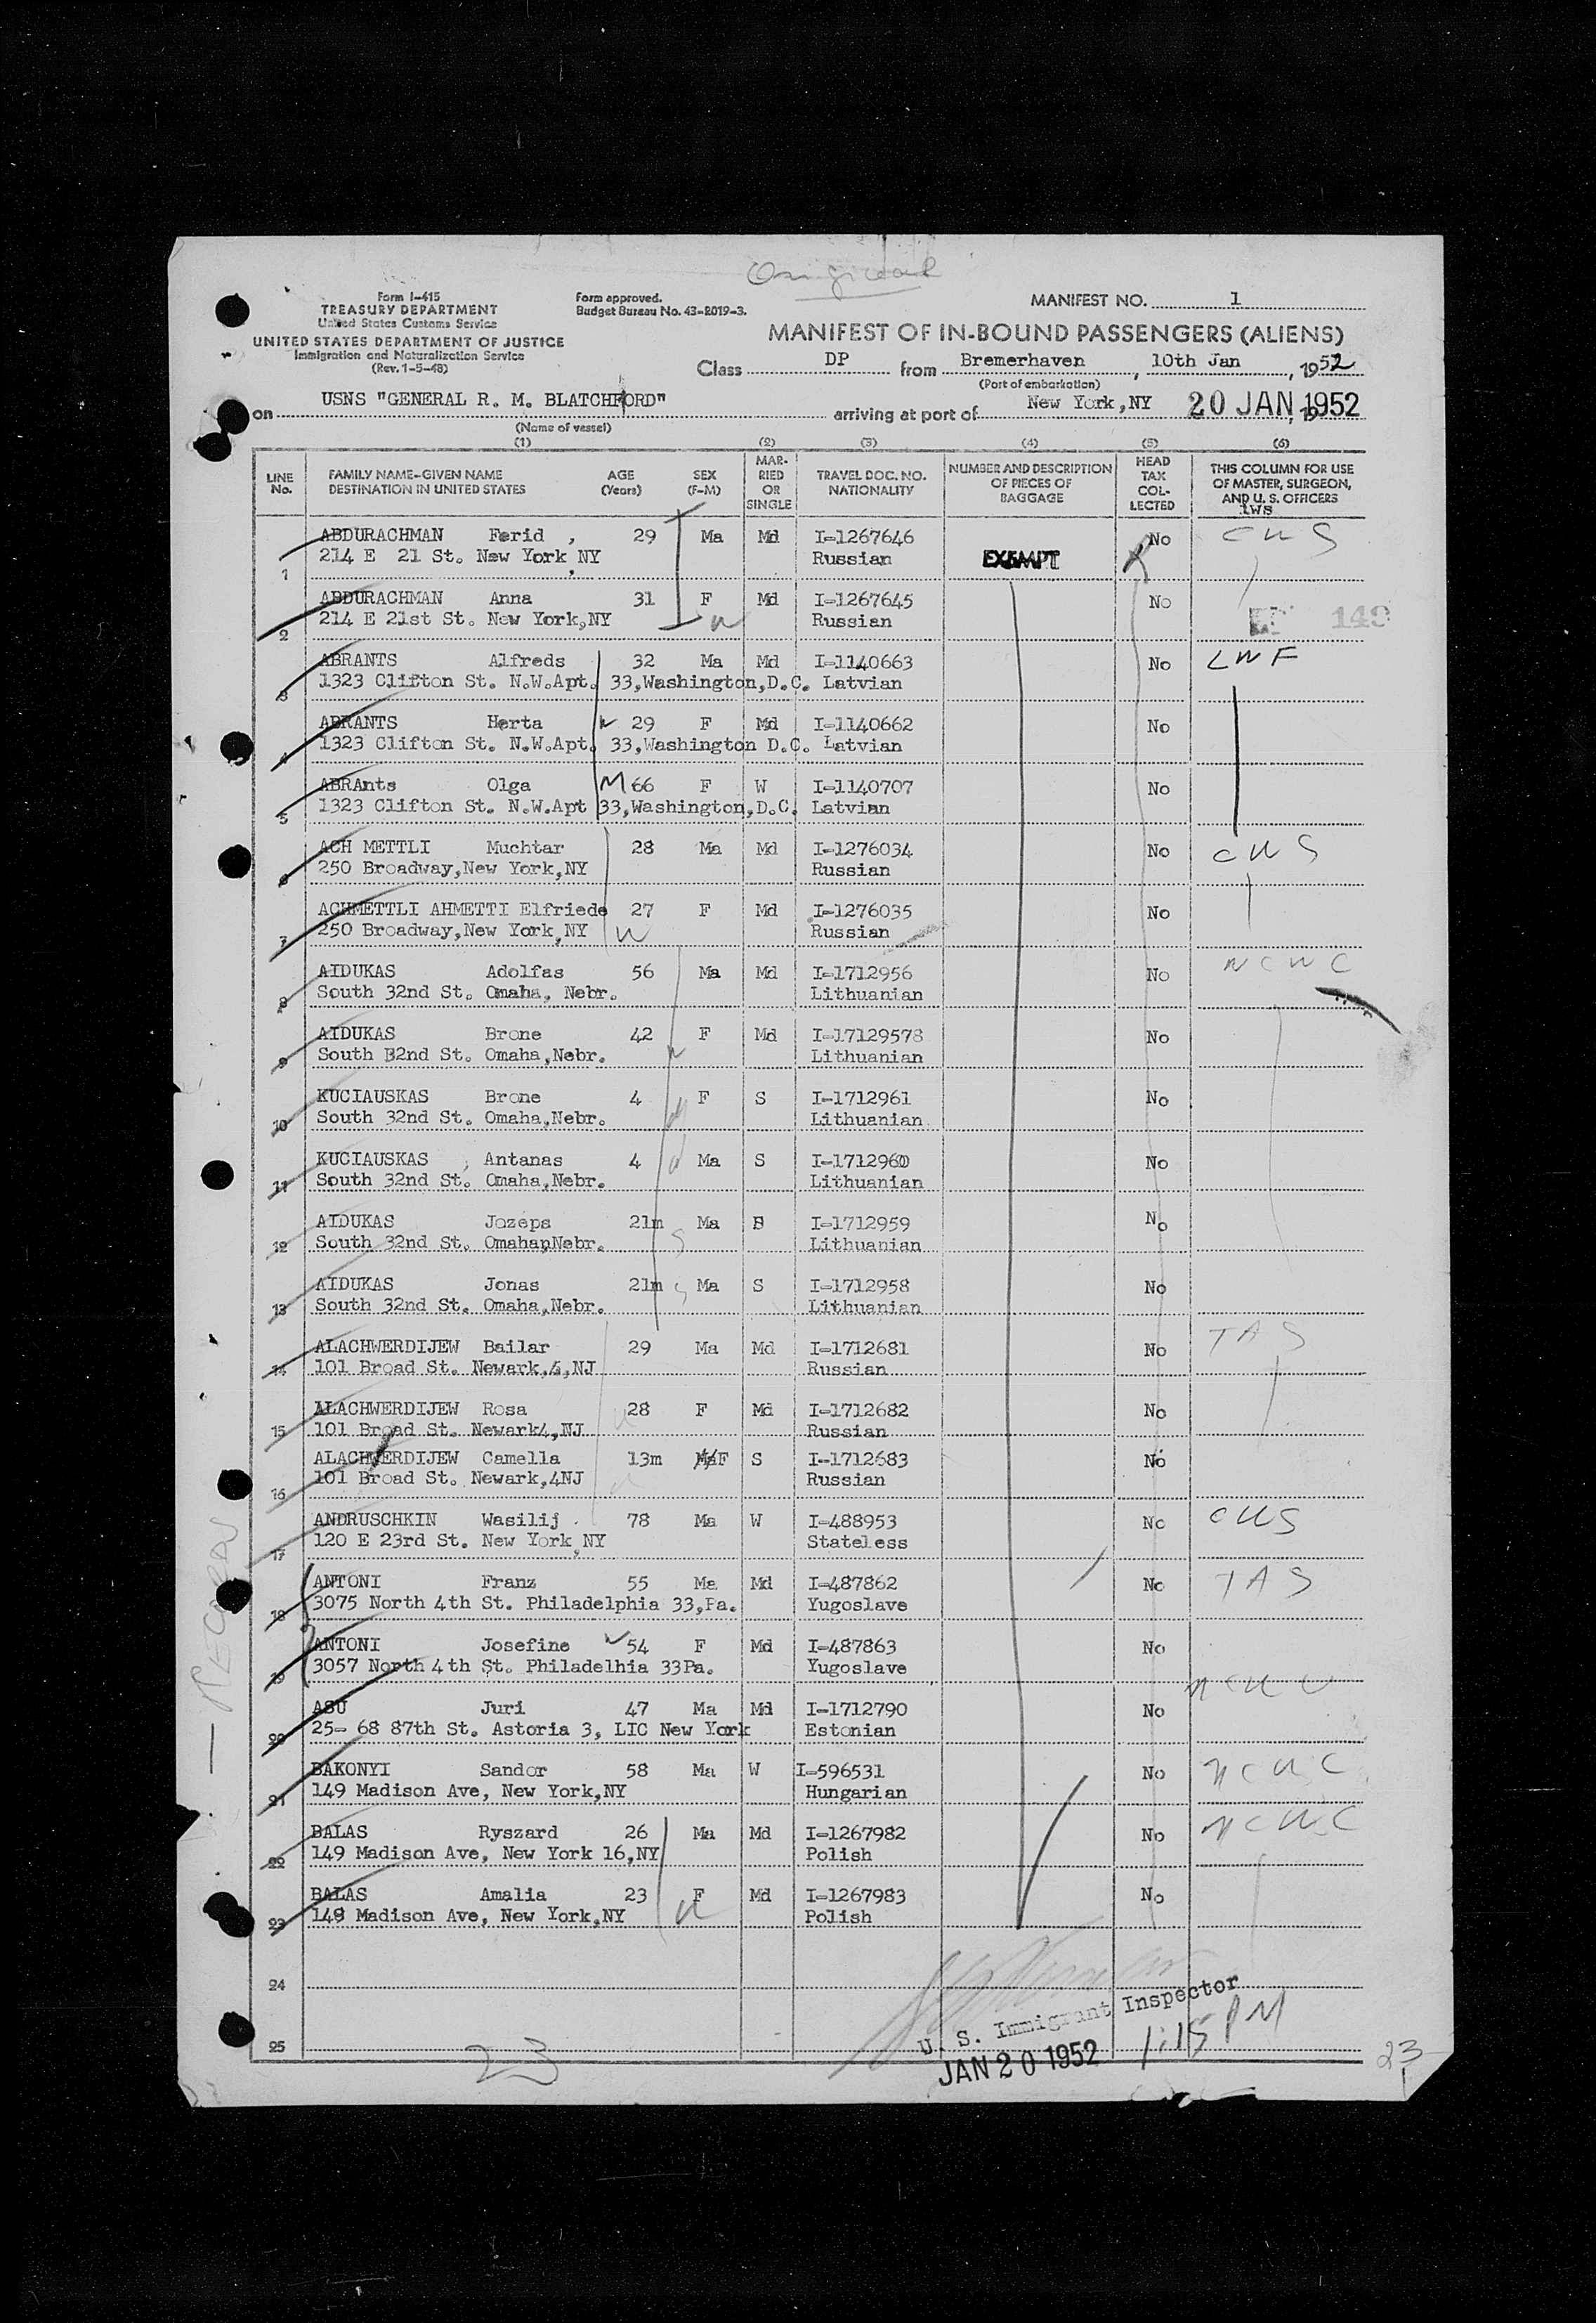 Original
Form I-415
TREASURY DEPARTMENT
United States Customs Service
UNITED STATES DEPARTMENT OF JUSTICE
Immigration and Naturalization Service
(Rev. 1-5-48)
Form approved.
Budget Bureau No. 43-R019-3.
MANIFEST NO. 1
MANIFEST OF IN-BOUND PASSENGERS (ALIENS)
Class DP from Bremerhaven, 10th Jan, 1952
(Port of embarkation)
on USNS "GENERAL R. M. BLATCHFORD" arriving at port of New York,NY 20 JAN 1952
(Name of vessel)
(1) (2) (3) (4) (5) (6)
LINE No.
FAMILY NAME-GIVEN NAME
DESTINATION IN UNITED STATES
AGE (Years)
SEX (F-M)
MAR-RIED OR SINGLE
TRAVEL DOC. NO. NATIONALITY
NUMBER AND DESCRIPTION OF PIECES OF BAGGAGE
HEAD TAX COL-LECTED
THIS COLUMN FOR USE OF MASTER, SURGEON, AND U. S. OFFICERS
1 ABDURACHMAN Ferid , 29 Ma Md I-1267646 No CWS
214 E 21 St. New York,NY Russian EXEMPT
2 ABDURACHMAN Anna 31 F Md I-1267645 No
214 E 21st St. New York,NY W Russian 149
3 ABRANTS Alfreds 32 Ma Md I-1140663 No LWF
1323 Clifton St. N.W.Apt. 33,Washington,D.C. Latvian
4 ABRANTS Herta W 29 F Md I-1140662 No
1323 Clifton St. N.W.Apt. 33,Washington D.C. Latvian
5 ABRAnts Olga M 66 F W I-1140707 No
1323 Clifton St. N.W.Apt 33,Washington,D.C. Latvian
6 ACH METTLI Muchtar 28 Ma Md I-1276034 No CWS
250 Broadway,New York,NY Russian
7 ACHMETTLI AHMETTI Elfriede 27 F Md I-1276035 No
250 Broadway,New York,NY W Russian
8 AIDUKAS Adolfas 56 Ma Md I-1712956 No NCWC
South 32nd St. Omaha, Nebr. Lithuanian
9 AIDUKAS Brone 42 F Md I-17129578 No
South B2nd St. Omaha,Nebr. W Lithuanian
10 KUCIAUSKAS Brone 4 F S I-1712961 No
South 32nd St. Omaha,Nebr. Lithuanian
11 KUCIAUSKAS , Antanas 4 Ma S I-1712960 No
South 32nd St. Omaha,Nebr. Lithuanian
12 AIDUKAS Jozeps 21m Ma S I-1712959 No
South 32nd St. Omahan,Nebr. S Lithuanian
13 AIDUKAS Jonas 21m S Ma S I-1712958 No
South 32nd St. Omaha,Nebr. Lithuanian
14 ALACHWERDIJEW Bailar 29 Ma Md I-1712681 No TAS
101 Broad St. Newark,4,NJ Russian
15 ALACHWERDIJEW Rosa 28 F Md I-1712682 No
101 Broad St. Newark4,NJ Russian
16 ALACHWERDIJEW Camella 13m MaF S I-1712683 No
101 Broad St. Newark,4NJ Russian
17 ANDRUSCHKIN Wasilij . 78 Ma W I-488953 No CWS
120 E 23rd St. New York,NY Stateless
18 ANTONI Franz 55 Ma Md I-487862 No TAS
3075 North 4th St. Philadelphia 33,Pa. Yugoslave
19 ANTONI Josefine 54 F Md I-487863 No
3057 North 4th St. Philadelhia 33Pa. Yugoslave
20 ASU Juri 47 Ma Md I-1712790 No NCWC
25- 68 87th St. Astoria 3, LIC New York Estonian
21 BAKONYI Sandor 58 Ma W I-596531 No NCWC
149 Madison Ave, New York,NY Hungarian
22 BALAS Ryszard 26 Ma Md I-1267982 No NCWC
149 Madison Ave, New York 16,NY Polish
23 BALAS Amalia 23 F Md I-1267983 No
149 Madison Ave, New York,NY W Polish
24
25
RECORD
23
U. S. Immigrant Inspector
JAN 20 1952
1:15 PM
23